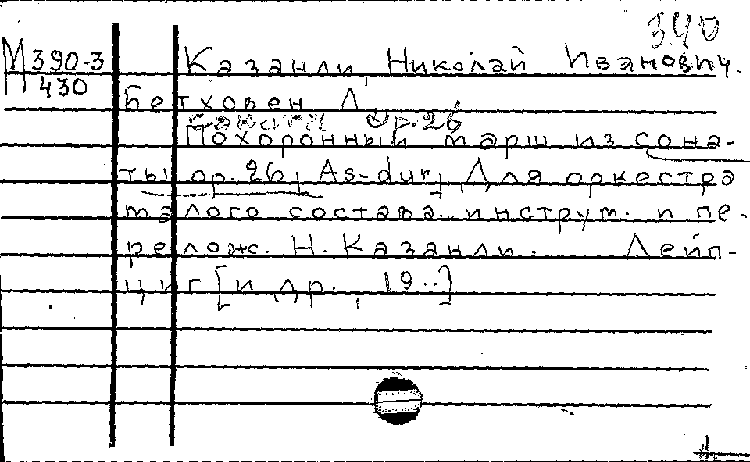 340
М390-3
430
Казанли, Николай Иванович.
Бетховен Л.
Соната Op. 26
Похоронный марш из сона-
ты ор. 26, As-dur, Для оркестра
малого состава инструм. п пе-
релож. Н. Казанли. Лейп-
циг [и др., 19..]